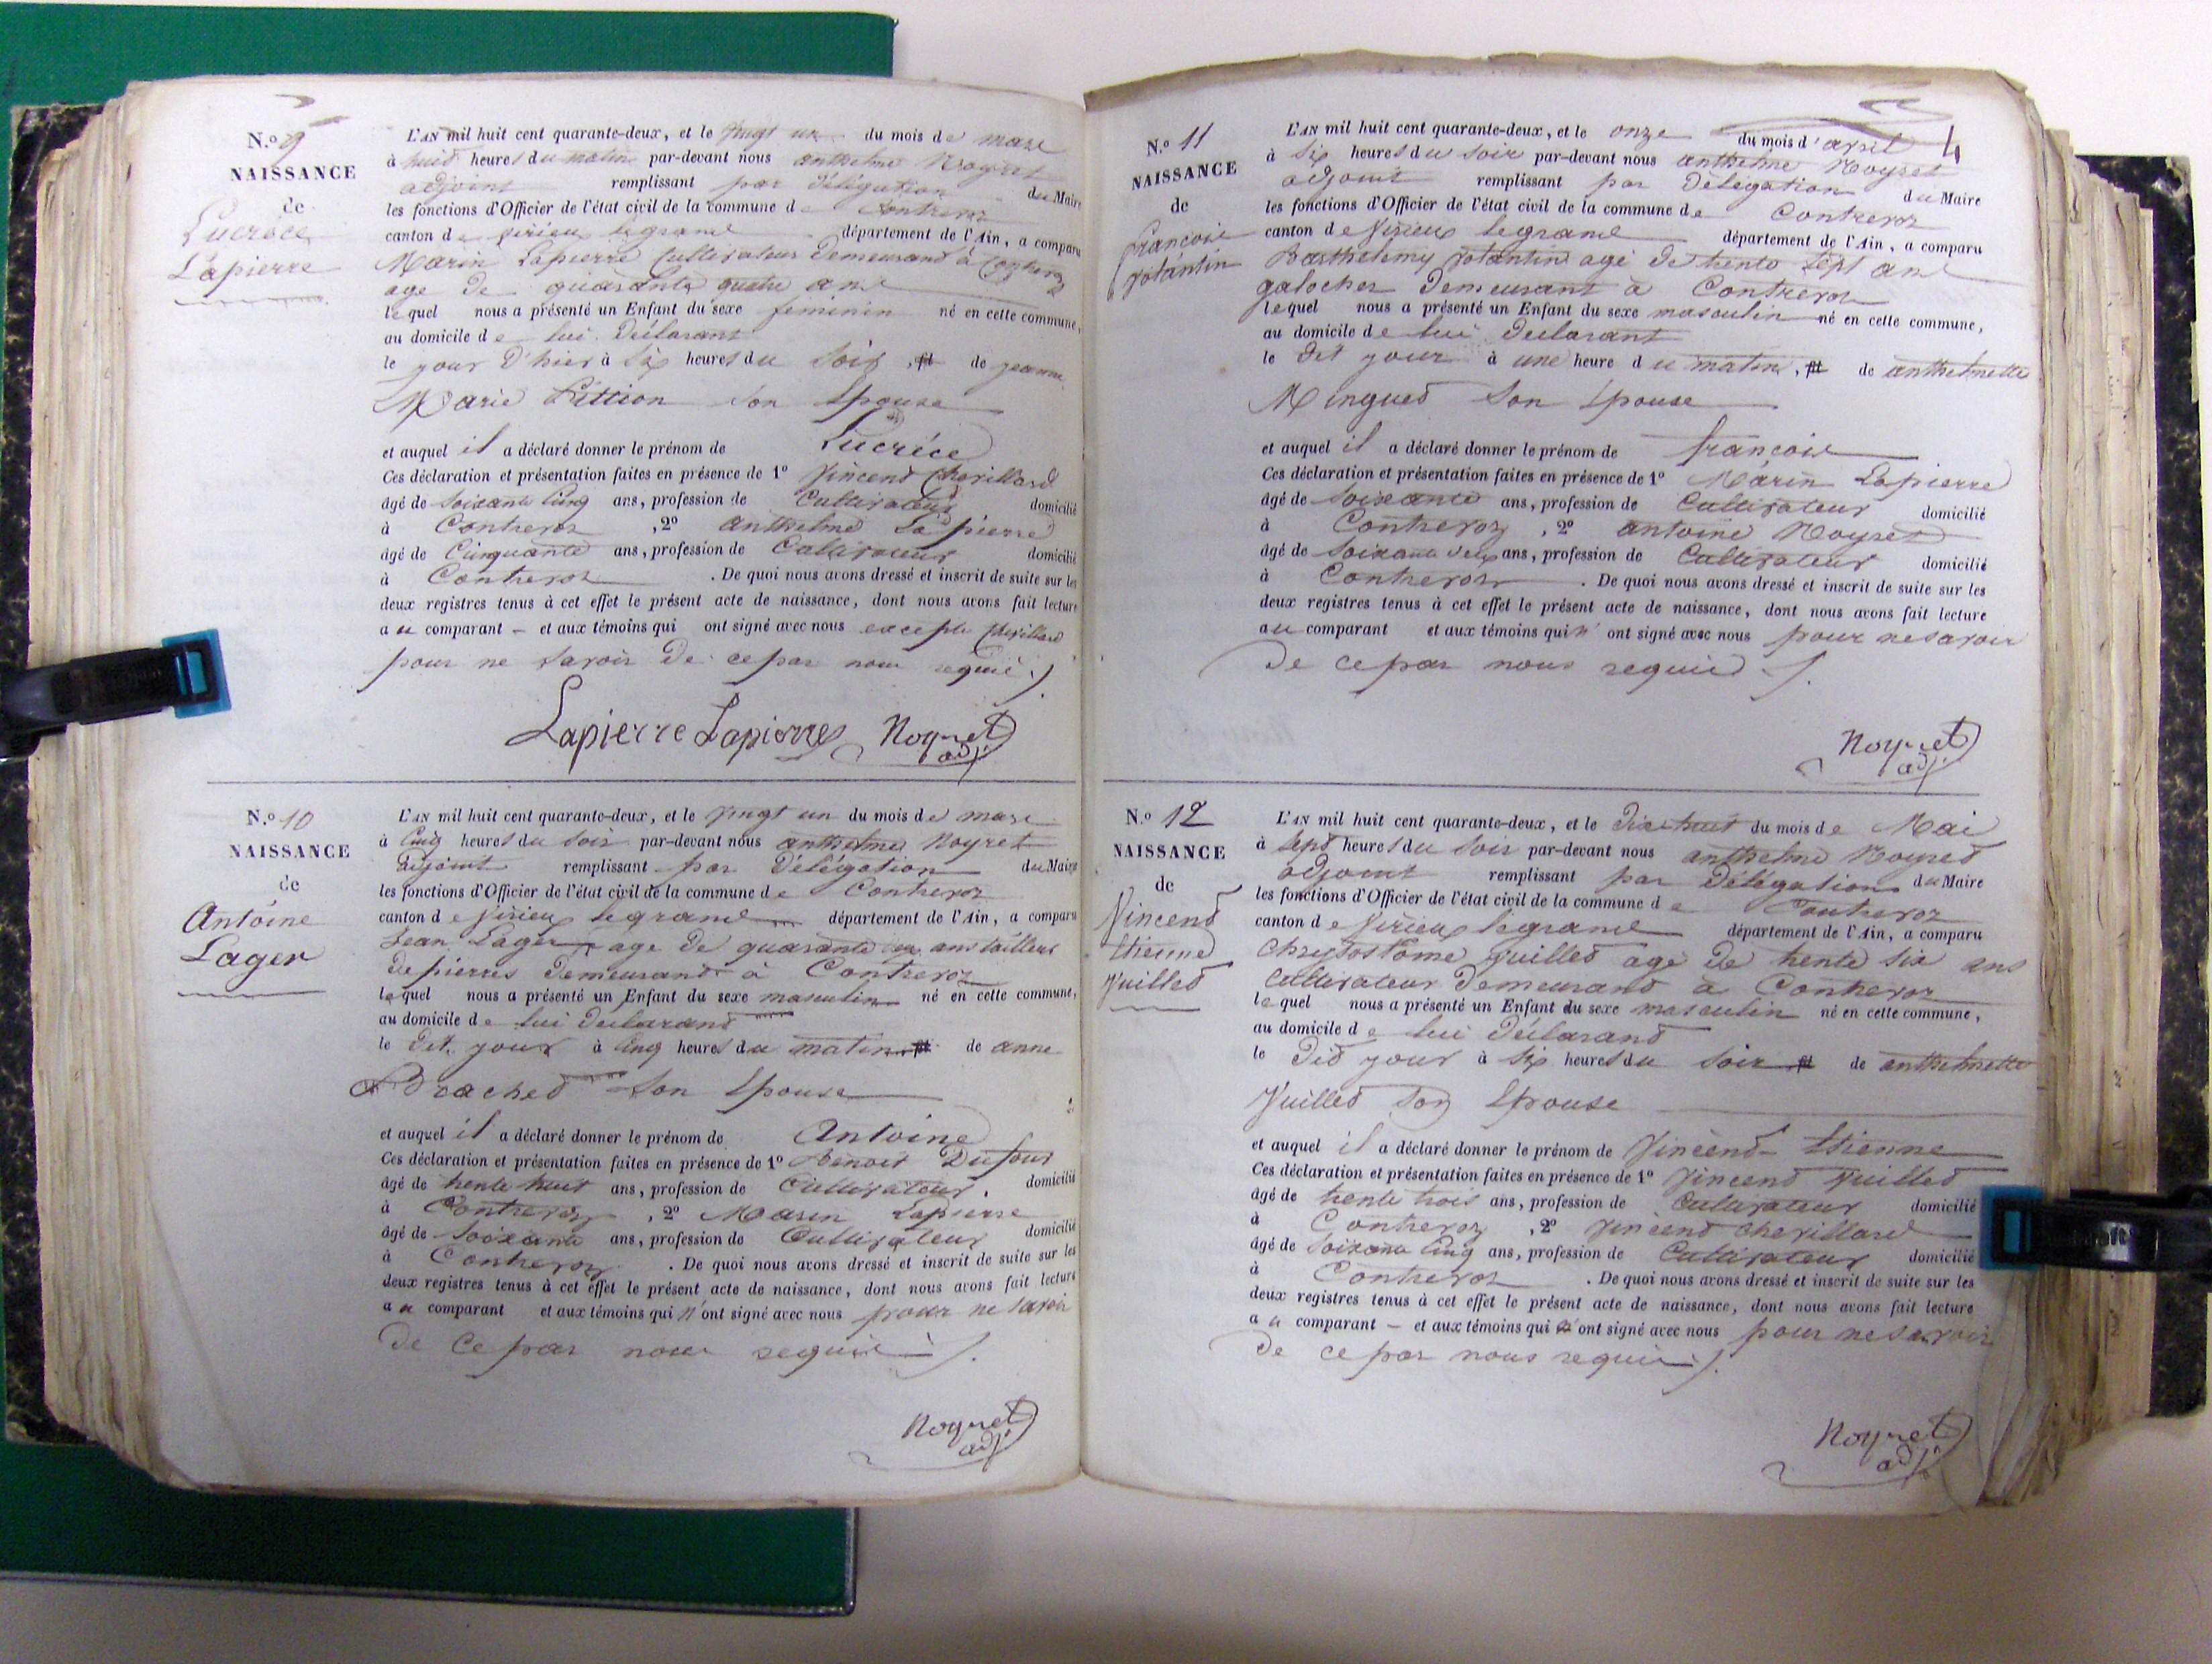 N.º 9
NAISSANCE
de
Lucréce
Lapierre
L'AN mil huit cent quarante-deux, et le vingt un du mois de mars
à huit heures du matin par-devant nous anthelme Noyret
adjoint remplissant par délégation du Maire
les fonctions d'Officier de l'état civil de la commune de Contrevoz
canton de virieu legrand département de l'Ain, a comparu
Marin Lapierre Cultivateur demeurant à Contrevoz
age de quarante quatre ans
lequel nous a présenté un Enfant du sexe feminin né en cette commune,
au domicile de lui déclarant
le jour d'hier à six heures du soir, et de jeanne
Marie Pittion son Epouse
et auquel il a déclaré donner le prénom de Lucréce
Ces déclaration et présentation faites en présence de 1º Vincent Chevillard
âgé de soixante cinq ans, profession de Cultivateur domicilié
à Contrevoz, 2º anthelme Lapierre
âgé de Cinquante ans, profession de Cultivateur domicilié
à Contrevoz. De quoi nous avons dressé et inscrit de suite sur les
deux registres tenus à cet effet le présent acte de naissance, dont nous avons fait lecture
au comparant – et aux témoins qui ont signé avec nous excepte Chevillard
pour ne savoir de ce par nous requis ./.
Lapierre Lapierre Noyret
adj.
N.º 10
NAISSANCE
de
Antoine
Lager
L'AN mil huit cent quarante-deux, et le vingt un du mois de mars
à Cinq heures du soir par-devant nous anthelme Noyret
adjoint remplissant par Délégation du Maire
les fonctions d'Officier de l'état civil de la commune de Contrevoz
canton de Virieu legrand département de l'Ain, a comparu
Jean Lager age de quarante ans tailleur
de pierres demeurant à Contrevoz
lequel nous a présenté un Enfant du sexe masculin né en cette commune,
au domicile de lui declarant
le dit jour à Cinq heures du matin, et de anne
Brachet son Epouse
et auquel il a déclaré donner le prénom de Antoine
Ces déclaration et présentation faites en présence de 1º Benoit Dufour
âgé de trente huit ans, profession de Cultivateur, domicilié
à Contrevoz, 2º Marin Lapierre
âgé de Soixante ans, profession de Cultivateur domicilié
à Contrevoz. De quoi nous avons dressé et inscrit de suite sur les
deux registres tenus à cet effet le présent acte de naissance, dont nous avons fait lecture
au comparant et aux témoins qui n'ont signé avec nous pour ne savoir
de ce par nous requis ./.
Noyret
adj.
4
N.º 11
NAISSANCE
de
francois
votantin
L'AN mil huit cent quarante-deux, et le onze du mois d'avril
à six heures du soir par-devant nous anthelme Noyret
adjoint remplissant par Délégation du Maire
les fonctions d'Officier de l'état civil de la commune de Contrevoz
canton de Virieu legrand département de l'Ain, a comparu
Barthelemy votantin agé de trente sept ans
galocher demeurant à Contrevoz
lequel nous a présenté un Enfant du sexe masculin né en cette commune,
au domicile de lui declarant
le dit jour à une heure du matin, et de anthelmette
Minguet son Epouse
et auquel il a déclaré donner le prénom de francois
Ces déclaration et présentation faites en présence de 1º Marin Lapierre
âgé de soixante ans, profession de Cultivateur domicilié
à Contrevoz, 2º antoine Noyret
âgé de soixante deux ans, profession de Cultivateur domicilié
à Contrevoz. De quoi nous avons dressé et inscrit de suite sur les
deux registres tenus à cet effet le présent acte de naissance, dont nous avons fait lecture
au comparant et aux témoins qui n'ont signé avec nous pour ne savoir
de ce par nous requis ./.
Noyret
adj.
N.º 12
NAISSANCE
de
Vincent
Etienne
Vuillet
L'AN mil huit cent quarante-deux, et le Dix huit du mois de Mai
à sept heures du soir par-devant nous anthelme Noyret
adjoint remplissant par Délégation du Maire
les fonctions d'Officier de l'état civil de la commune de Contrevoz
canton de Virieu legrand département de l'Ain, a comparu
Chrysostome Vuillet age de trente six ans
Cultivateur demeurant à Contrevoz
lequel nous a présenté un Enfant du sexe masculin né en cette commune,
au domicile de lui déclarant
le dit jour à six heures du soir et de anthelmette
Vuillet son Epouse
et auquel il a déclaré donner le prénom de Vincent Etienne
Ces déclaration et présentation faites en présence de 1º Vincent Vuillet
âgé de trente trois ans, profession de Cultivateur domicilié
à Contrevoz, 2º Vincent Chevillard
âgé de Soixante cinq ans, profession de Cultivateur domicilié
à Contrevoz. De quoi nous avons dressé et inscrit de suite sur les
deux registres tenus à cet effet le présent acte de naissance, dont nous avons fait lecture
au comparant – et aux témoins qui n'ont signé avec nous pour ne savoir
de ce par nous requis ./.
Noyret
adj.